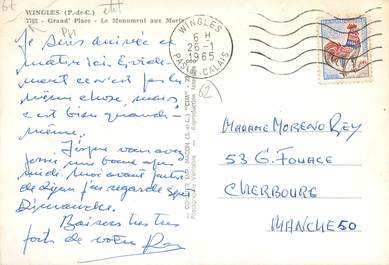 WINGLES (P.-de-C.)
7762 - Grand' Place - Le Monument aux Morts
WINGLES
6 H
26-1
1965
PAS-DE-CALAIS
Je suis arrivée ce
matin ici. Evidem
ment ce n'est pas la
même chose, mais,
c'est bien quand-
même.
J'espère vous avez
passé une bonne après
midi. Moi avant partir
de Dijon j'ai regardé
Dimanche.
Baisers très très
forts de votre
MADAME MORENO REY
53 G. FOUACE
CHERBOURG
MANCHE 50
62
COMBIER IMP. MACON (S.-et-L.) "CIM"
Photographie Véritable - Reproduction